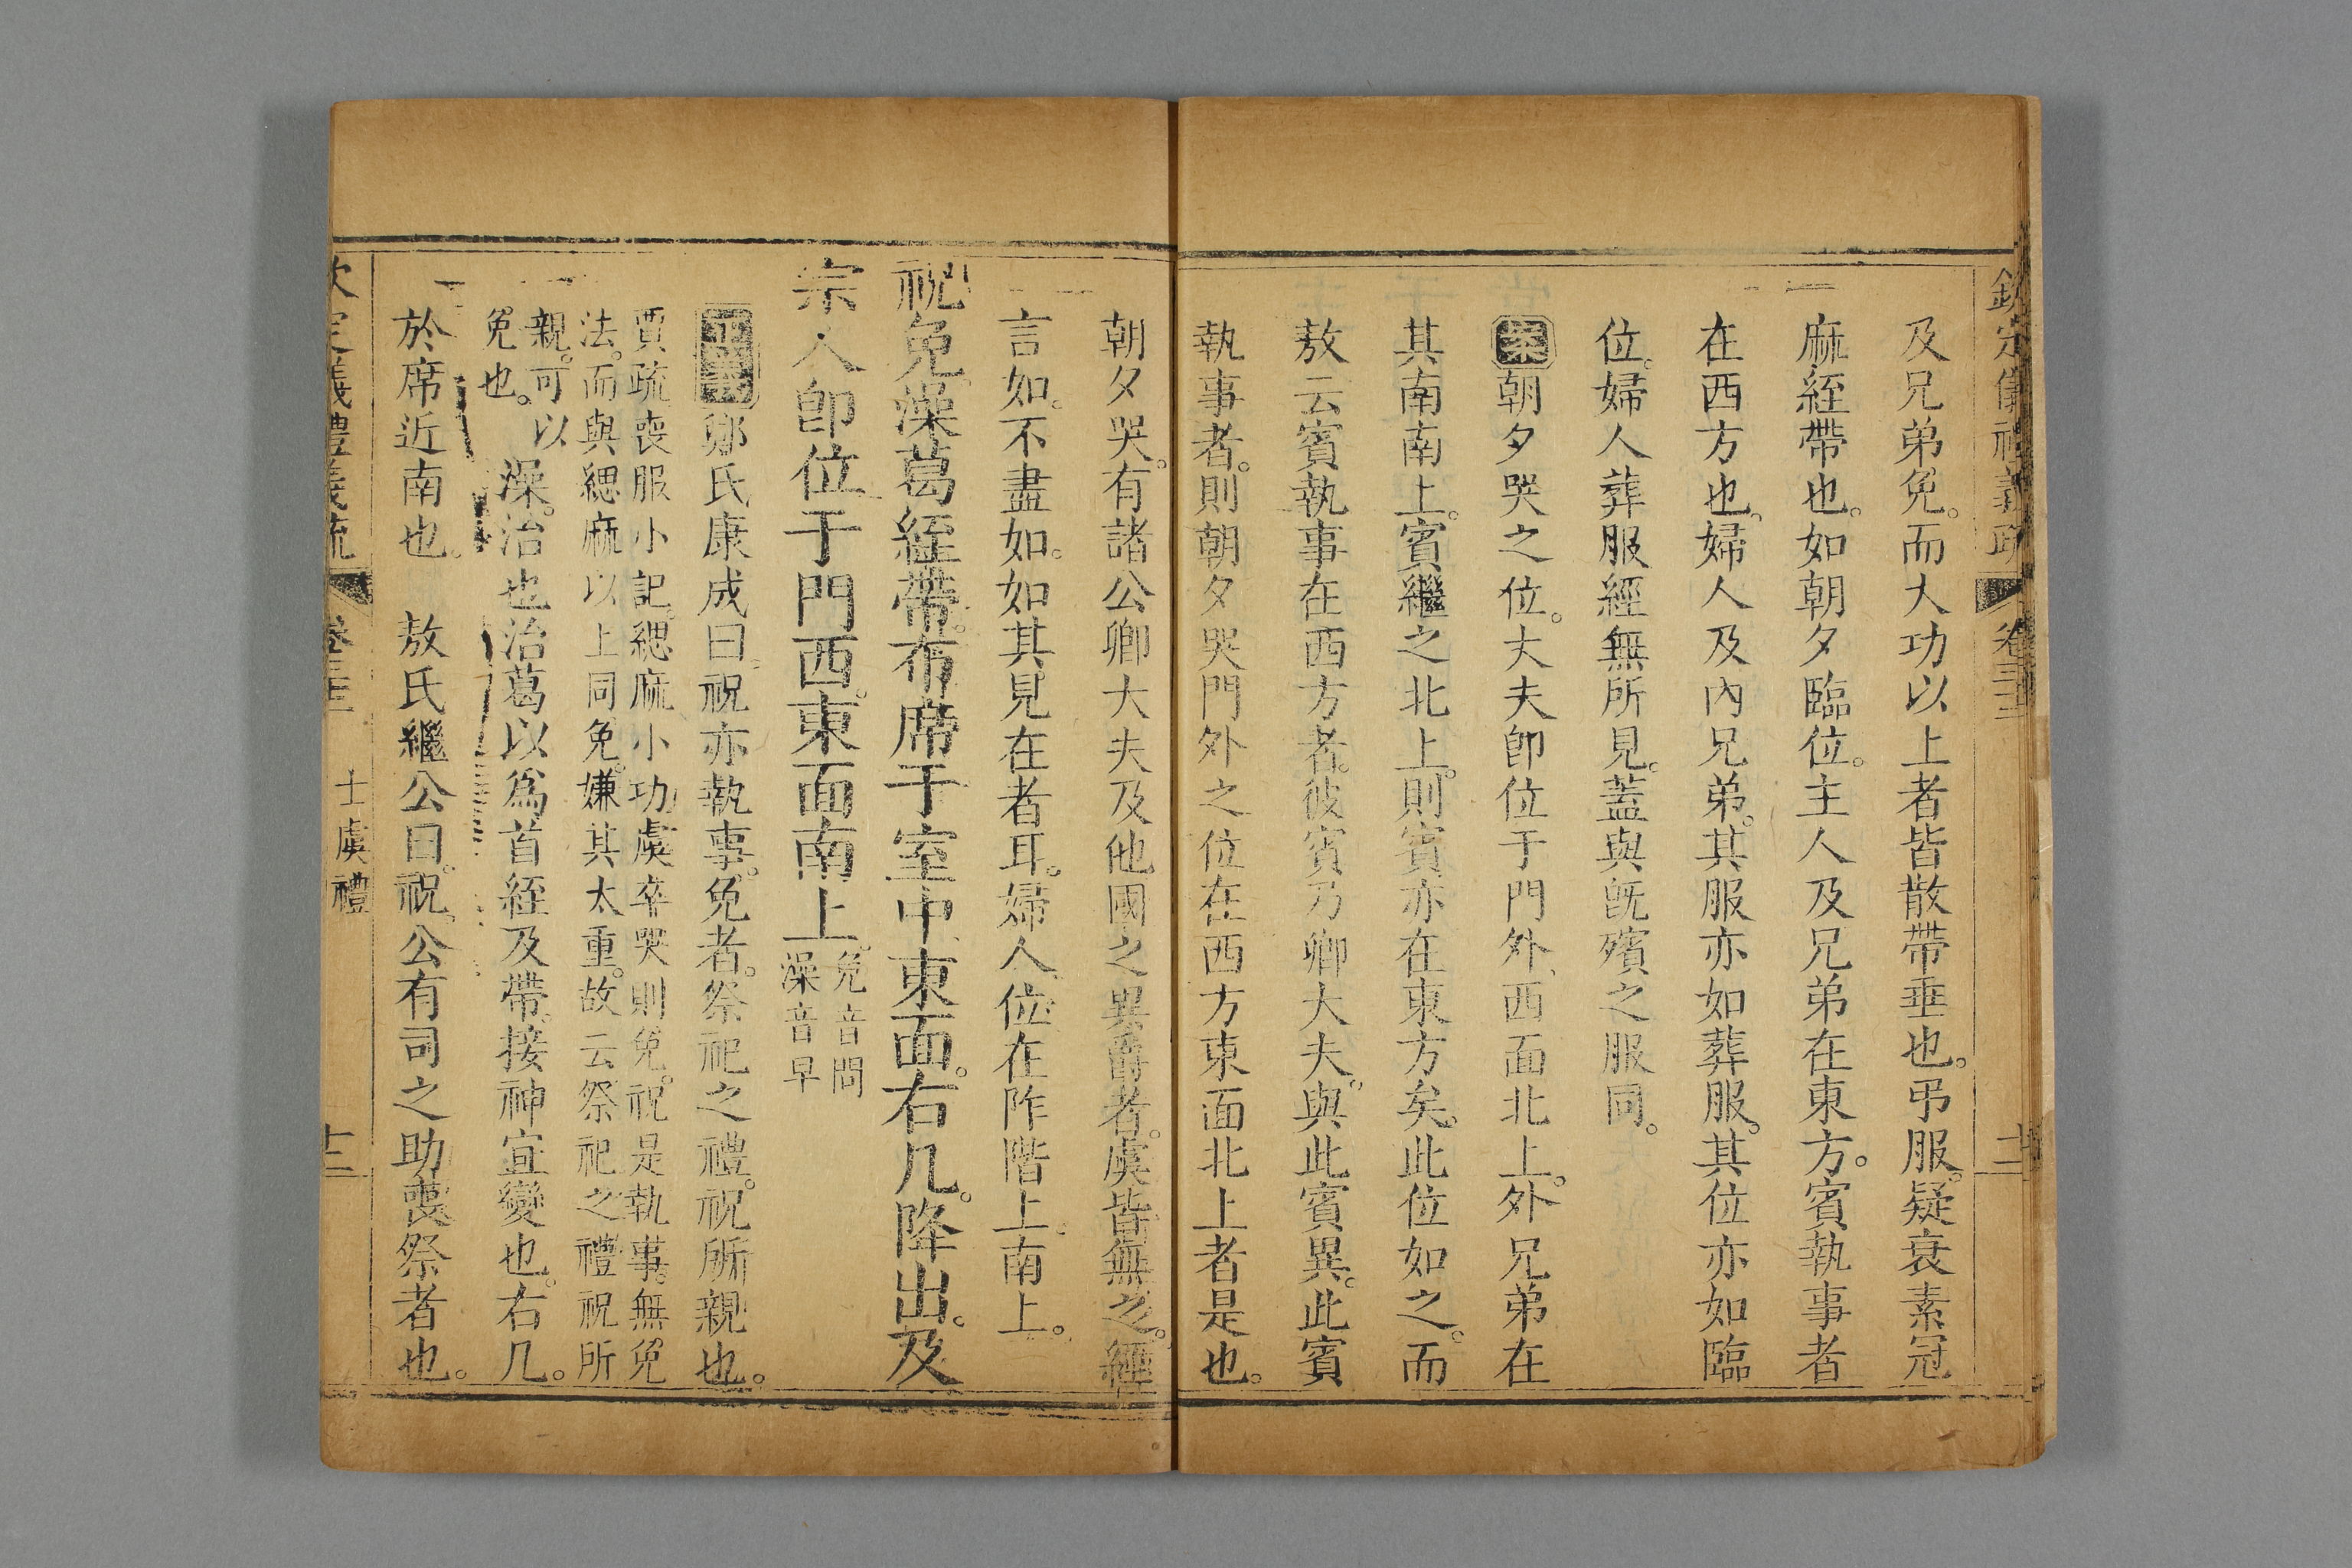 欽定儀禮義疏 卷三十三 十二
及兄弟免。而大功以上者皆散帶垂也。弔服。疑衰素冠
麻絰帶也。如朝夕臨位。主人及兄弟在東方。賓執事者
在西方也。婦人及內兄弟。其服亦如葬服。其位亦如臨
位。婦人葬服經無所見。蓋與旣殯之服同。
案朝夕哭之位。大夫卽位于門外。西面北上。外兄弟在
其南南上。賓繼之北上。則賓亦在東方矣。此位如之。而
敖云賓執事在西方者。彼賓乃卿大夫。與此賓異。此賓
執事者。則朝夕哭門外之位在西方東面北上者是也。
朝夕哭。有諸公卿大夫及他國之異爵者。虞皆無之。經
言如。不盡如。如其見在者耳。婦人位在阼階上。南上。
祝免澡葛絰帶。布席于室中東面。右几。降出。及
宗人卽位于門西。東面南上。免音問
澡音早
正義鄭氏康成曰。祝亦執事。免者。祭祀之禮。祝所親也。
賈疏喪服小記。緦麻小功虞卒哭則免。祝是執事。無免
法。而與緦麻以上同免。嫌其太重。故云祭祀之禮祝所
親。可以
免也。
澡。治也治葛以爲首絰及帶。接神宜變也。右几。
於席近南也。 敖氏繼公曰。祝。公有司之助喪祭者也。
欽定儀禮義疏 卷三十三 士虞禮 十二